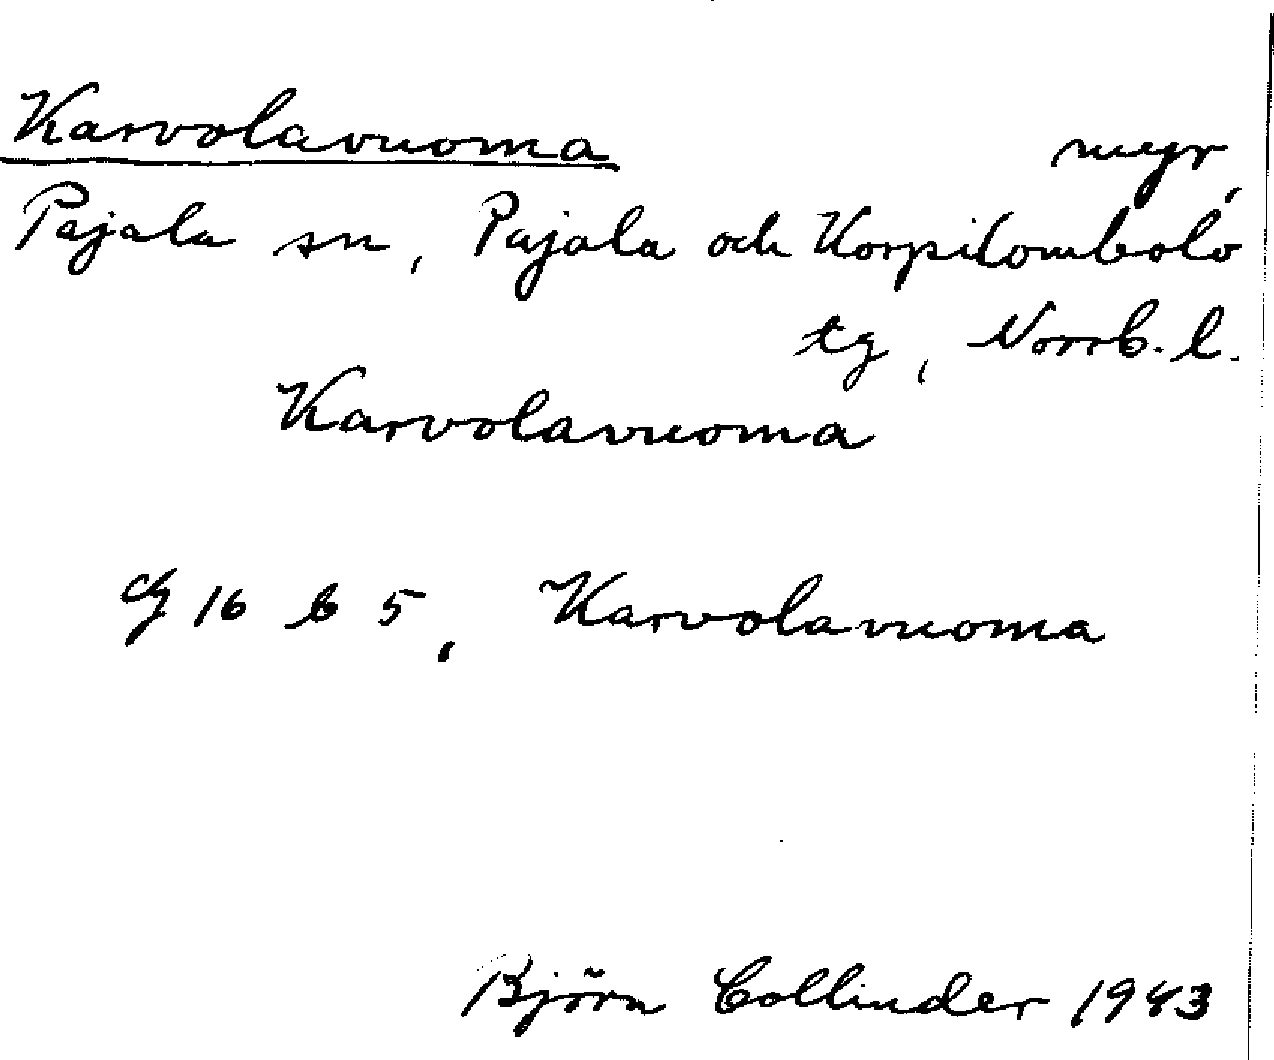 Karvolavuoma myr,
Pajala sn, Pajala och Korpilombolo
tg, Norrb. l.
Karvolavuoma
Cg 16 b 5, Karvolavuoma
Björn Collinder 1943